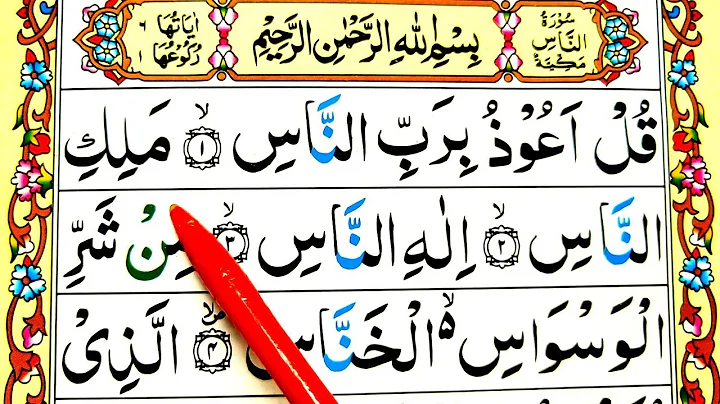 سُوْرَةُ النَّاسِ مَكِّيَّةٌ
بِسْمِ اللهِ الرَّحْمٰنِ الرَّحِيْمِ
اٰيَاتُهَا ٦
رُكُوْعُهَا ١
قُلْ اَعُوْذُ بِرَبِّ النَّاسِ ۙ﴿١﴾ مَلِكِ
النَّاسِ ۙ﴿٢﴾ اِلٰهِ النَّاسِ ۙ﴿٣﴾ مِنْ شَرِّ
الْوَسْوَاسِ ۙ۵ الْخَنَّاسِ ۙ﴿٤﴾ الَّذِيْ